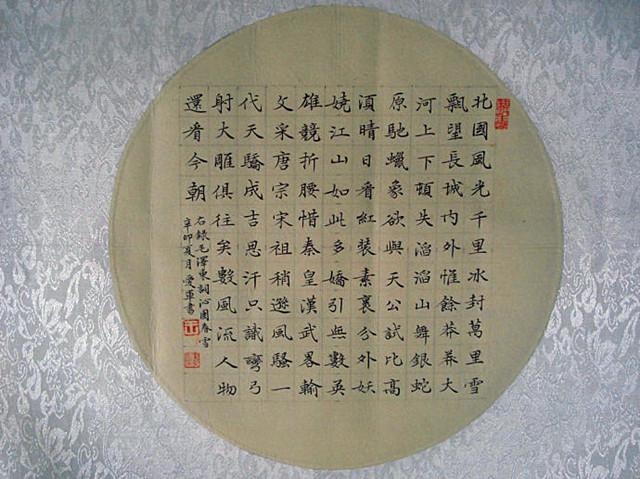 北國風光千里冰封萬里雪
飄望長城内外惟餘莽莽大
河上下頓失滔滔山舞銀蛇
原馳蠟象欲與天公試比高
須晴日看紅裝素裹分外妖
嬈江山如此多嬌引無數英
雄競折腰惜秦皇漢武畧輸
文采唐宗宋祖稍遜風騷一
代天驕成吉思汗只識彎弓
射大雕俱往矣數風流人物
還看今朝
右錄毛澤東詞沁園春雪
辛卯夏月愛軍書